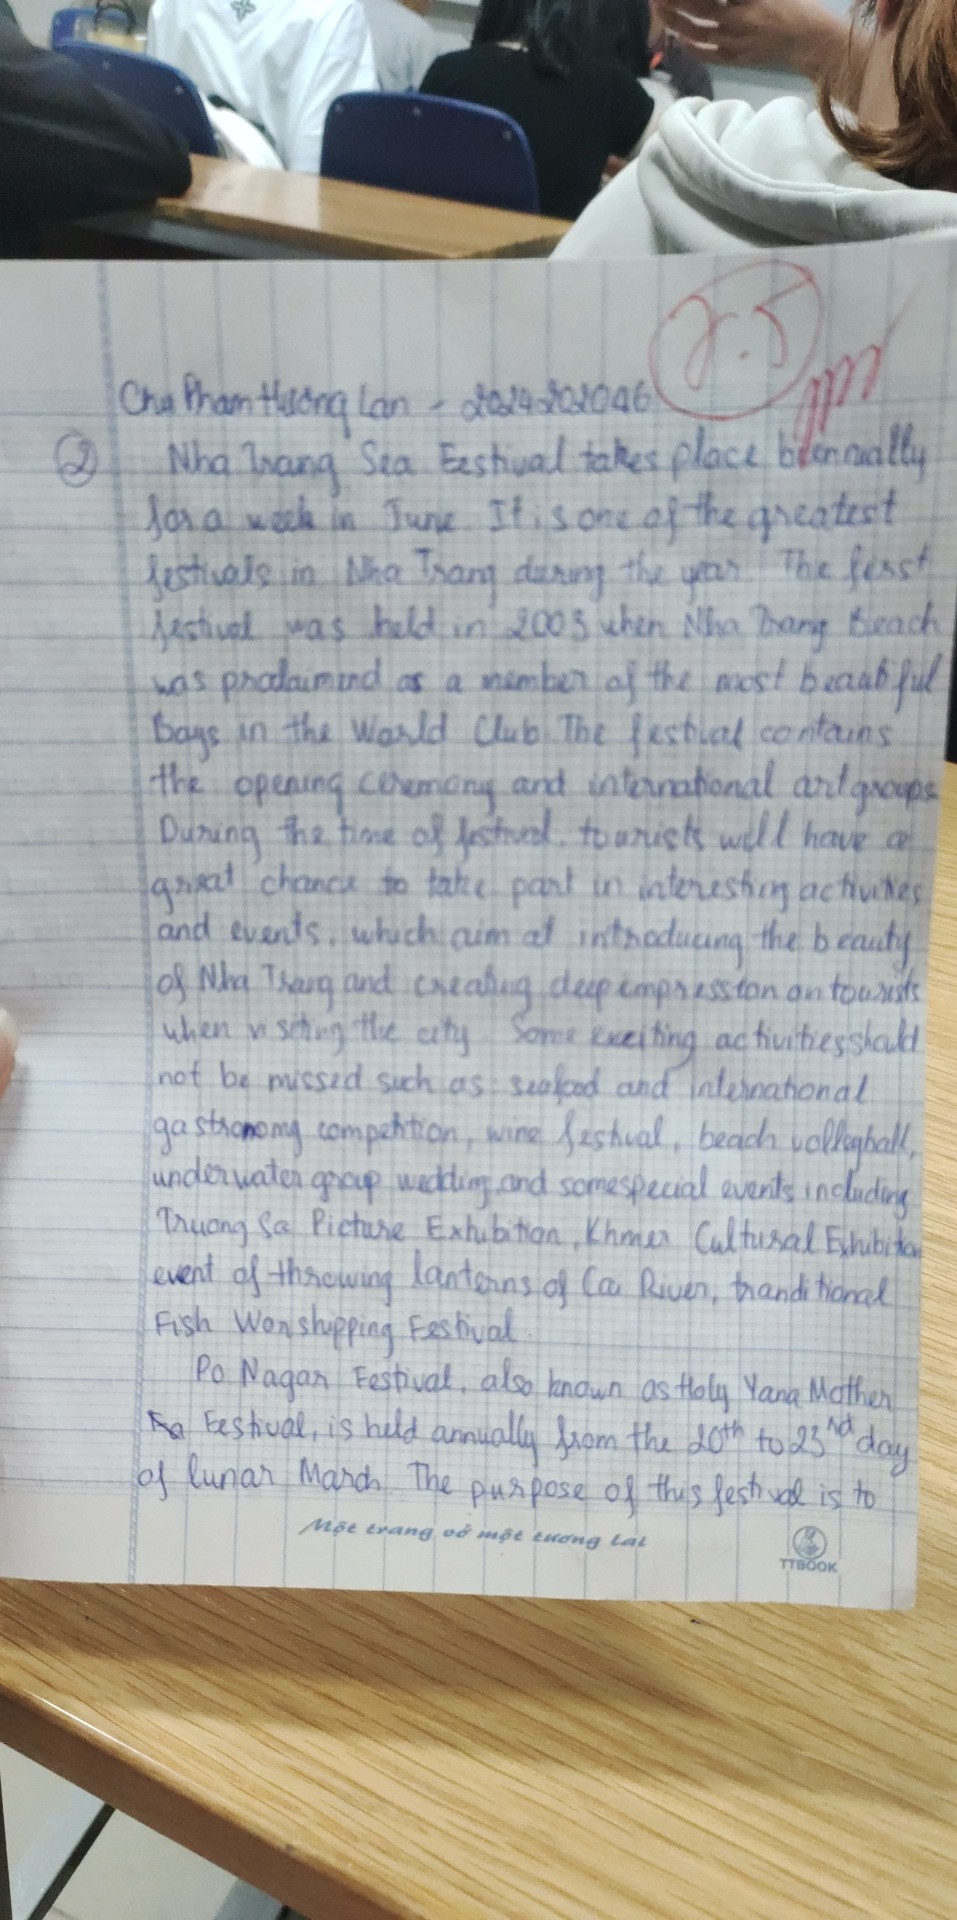 8.5
Chu Phạm Hương Lan - 2024202046
② Nha Trang Sea Festival takes place biennually
for a week in June. It is one of the greatest
festivals in Nha Trang during the year. The first
festival was held in 2003 when Nha Trang Beach
was proclaimend as a member of the most beautiful
Bays in the World Club. The festival contains
the opening ceremony and international art groups.
During the time of festival, tourists will have a
great chance to take part in interesting activities
and events, which aim at introducing the beauty
of Nha Trang and creating deep impression on tourists
when visiting the city. Some exciting activities should
not be missed such as: seafood and international
gastronomy competition, wine festival, beach volleyball,
underwater group wedding and some special events including
Truong Sa Picture Exhibition, Khmer Cultural Exhibition
event of throwing lanterns of Ca River, tranditional
Fish Worshipping Festival.
Po Nagar Festival, also known as Holy Yana Mother
Festival, is held annually from the 20th to 23nd day
of lunar March. The purpose of this festival is to
Một trang vở một tương lai
TTBOOK